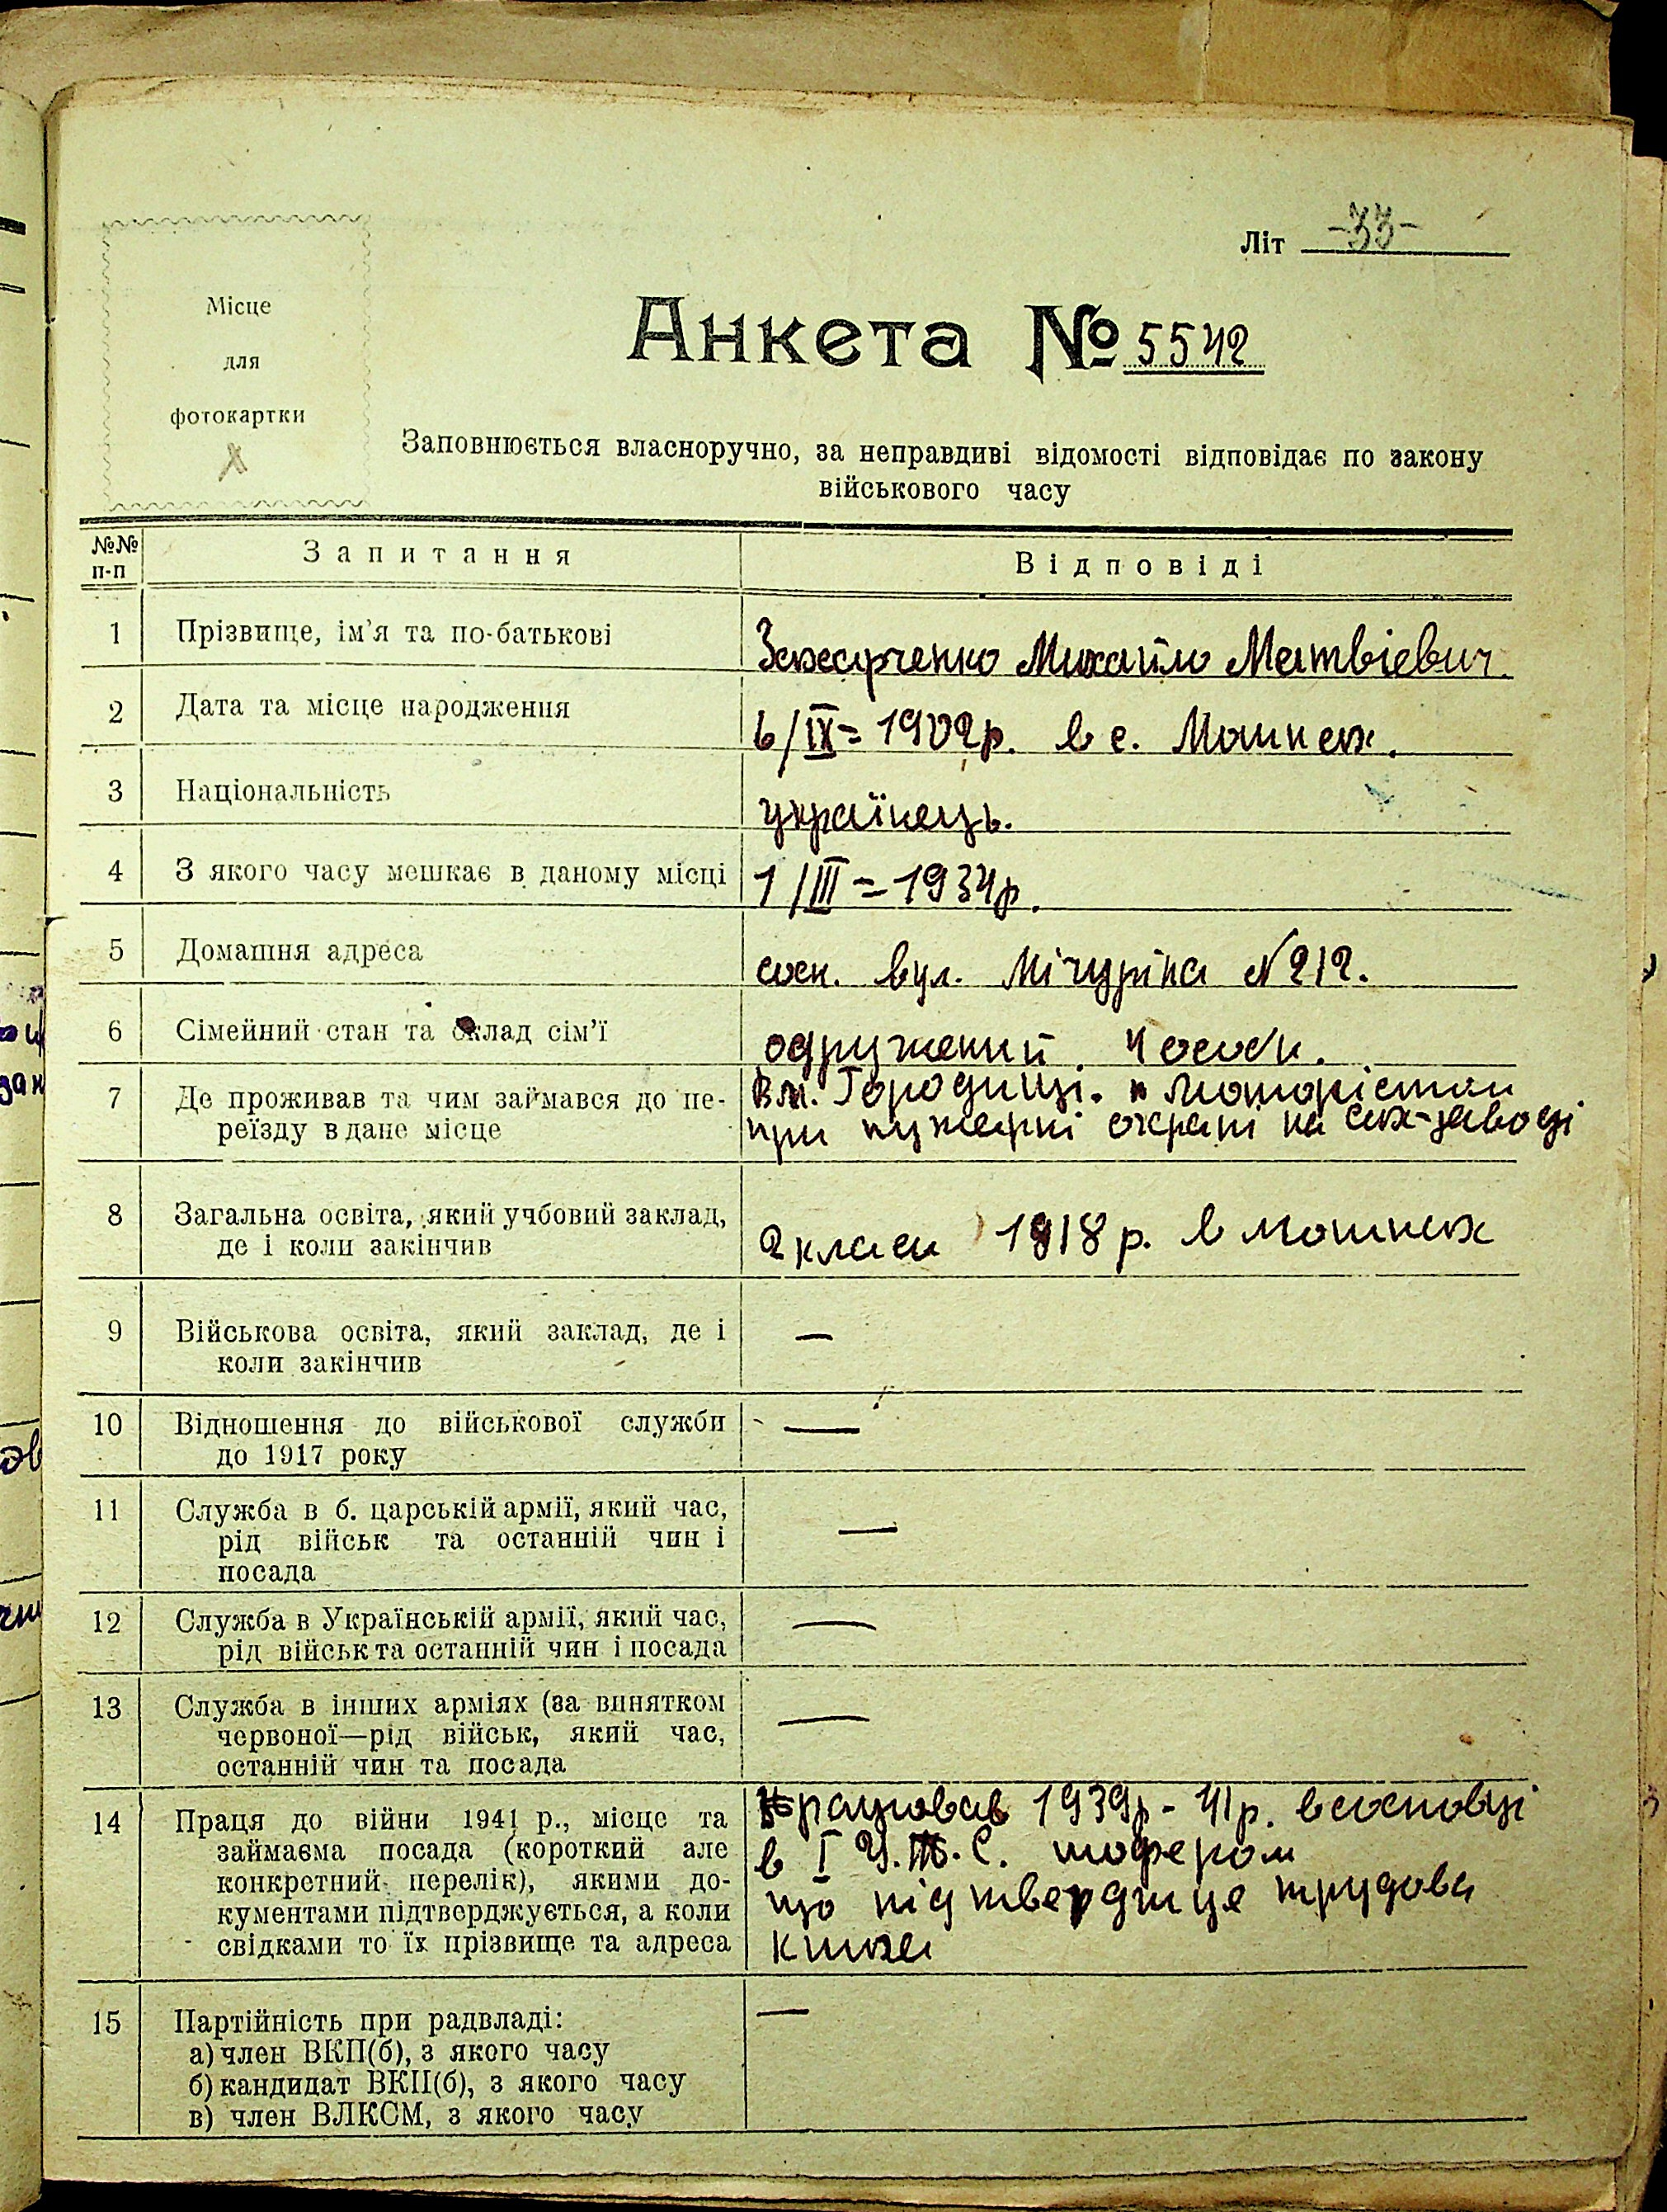 Літ -33-
Місце
для
фотокартки
Анкета № 5542
Заповнюється власноручно, за неправдиві відомості відповідає по закону
військового часу
№№ п-п Запитання Відповіді
1 Прізвище, ім'я та по-батькові Захарченко Михайло Матвієвич.
2 Дата та місце народження 6/IX=1902р. в с. Мошнах.
3 Національність українець.
4 З якого часу мешкає в даному місці 1/III=1934р.
5 Домашня адреса сосн. вул. Мічуріна №212.
6 Сімейний стан та склад сім'ї одружений. 4 особи.
7 Де проживав та чим займався до пе- В м. Городищі. мотористом
реїзду в дане місце при пужарні охрані на сах-заводі
8 Загальна освіта, який учбовий заклад,
де і коли закінчив 2 класи 1918 р. в мошнах
9 Військова освіта, який заклад, де і —
коли закінчив
10 Відношення до військової служби —
до 1917 року
11 Служба в б. царській армії, який час, —
рід військ та останній чин і
посада
12 Служба в Українській армії, який час, —
рід військ та останній чин і посада
13 Служба в інших арміях (за винятком —
червоної—рід військ, який час,
останній чин та посада
14 Праця до війни 1941 р., місце та працював 1939р-41р. в сосновці
займаєма посада (короткий але в I У.Т.С. шофером
конкретний перелік), якими до- що підтверджує трудова
кументами підтверджується, а коли книжа
свідками то їх прізвище та адреса
15 Партійність при радвладі: —
а) член ВКП(б), з якого часу
б) кандидат ВКП(б), з якого часу
в) член ВЛКСМ, з якого часу